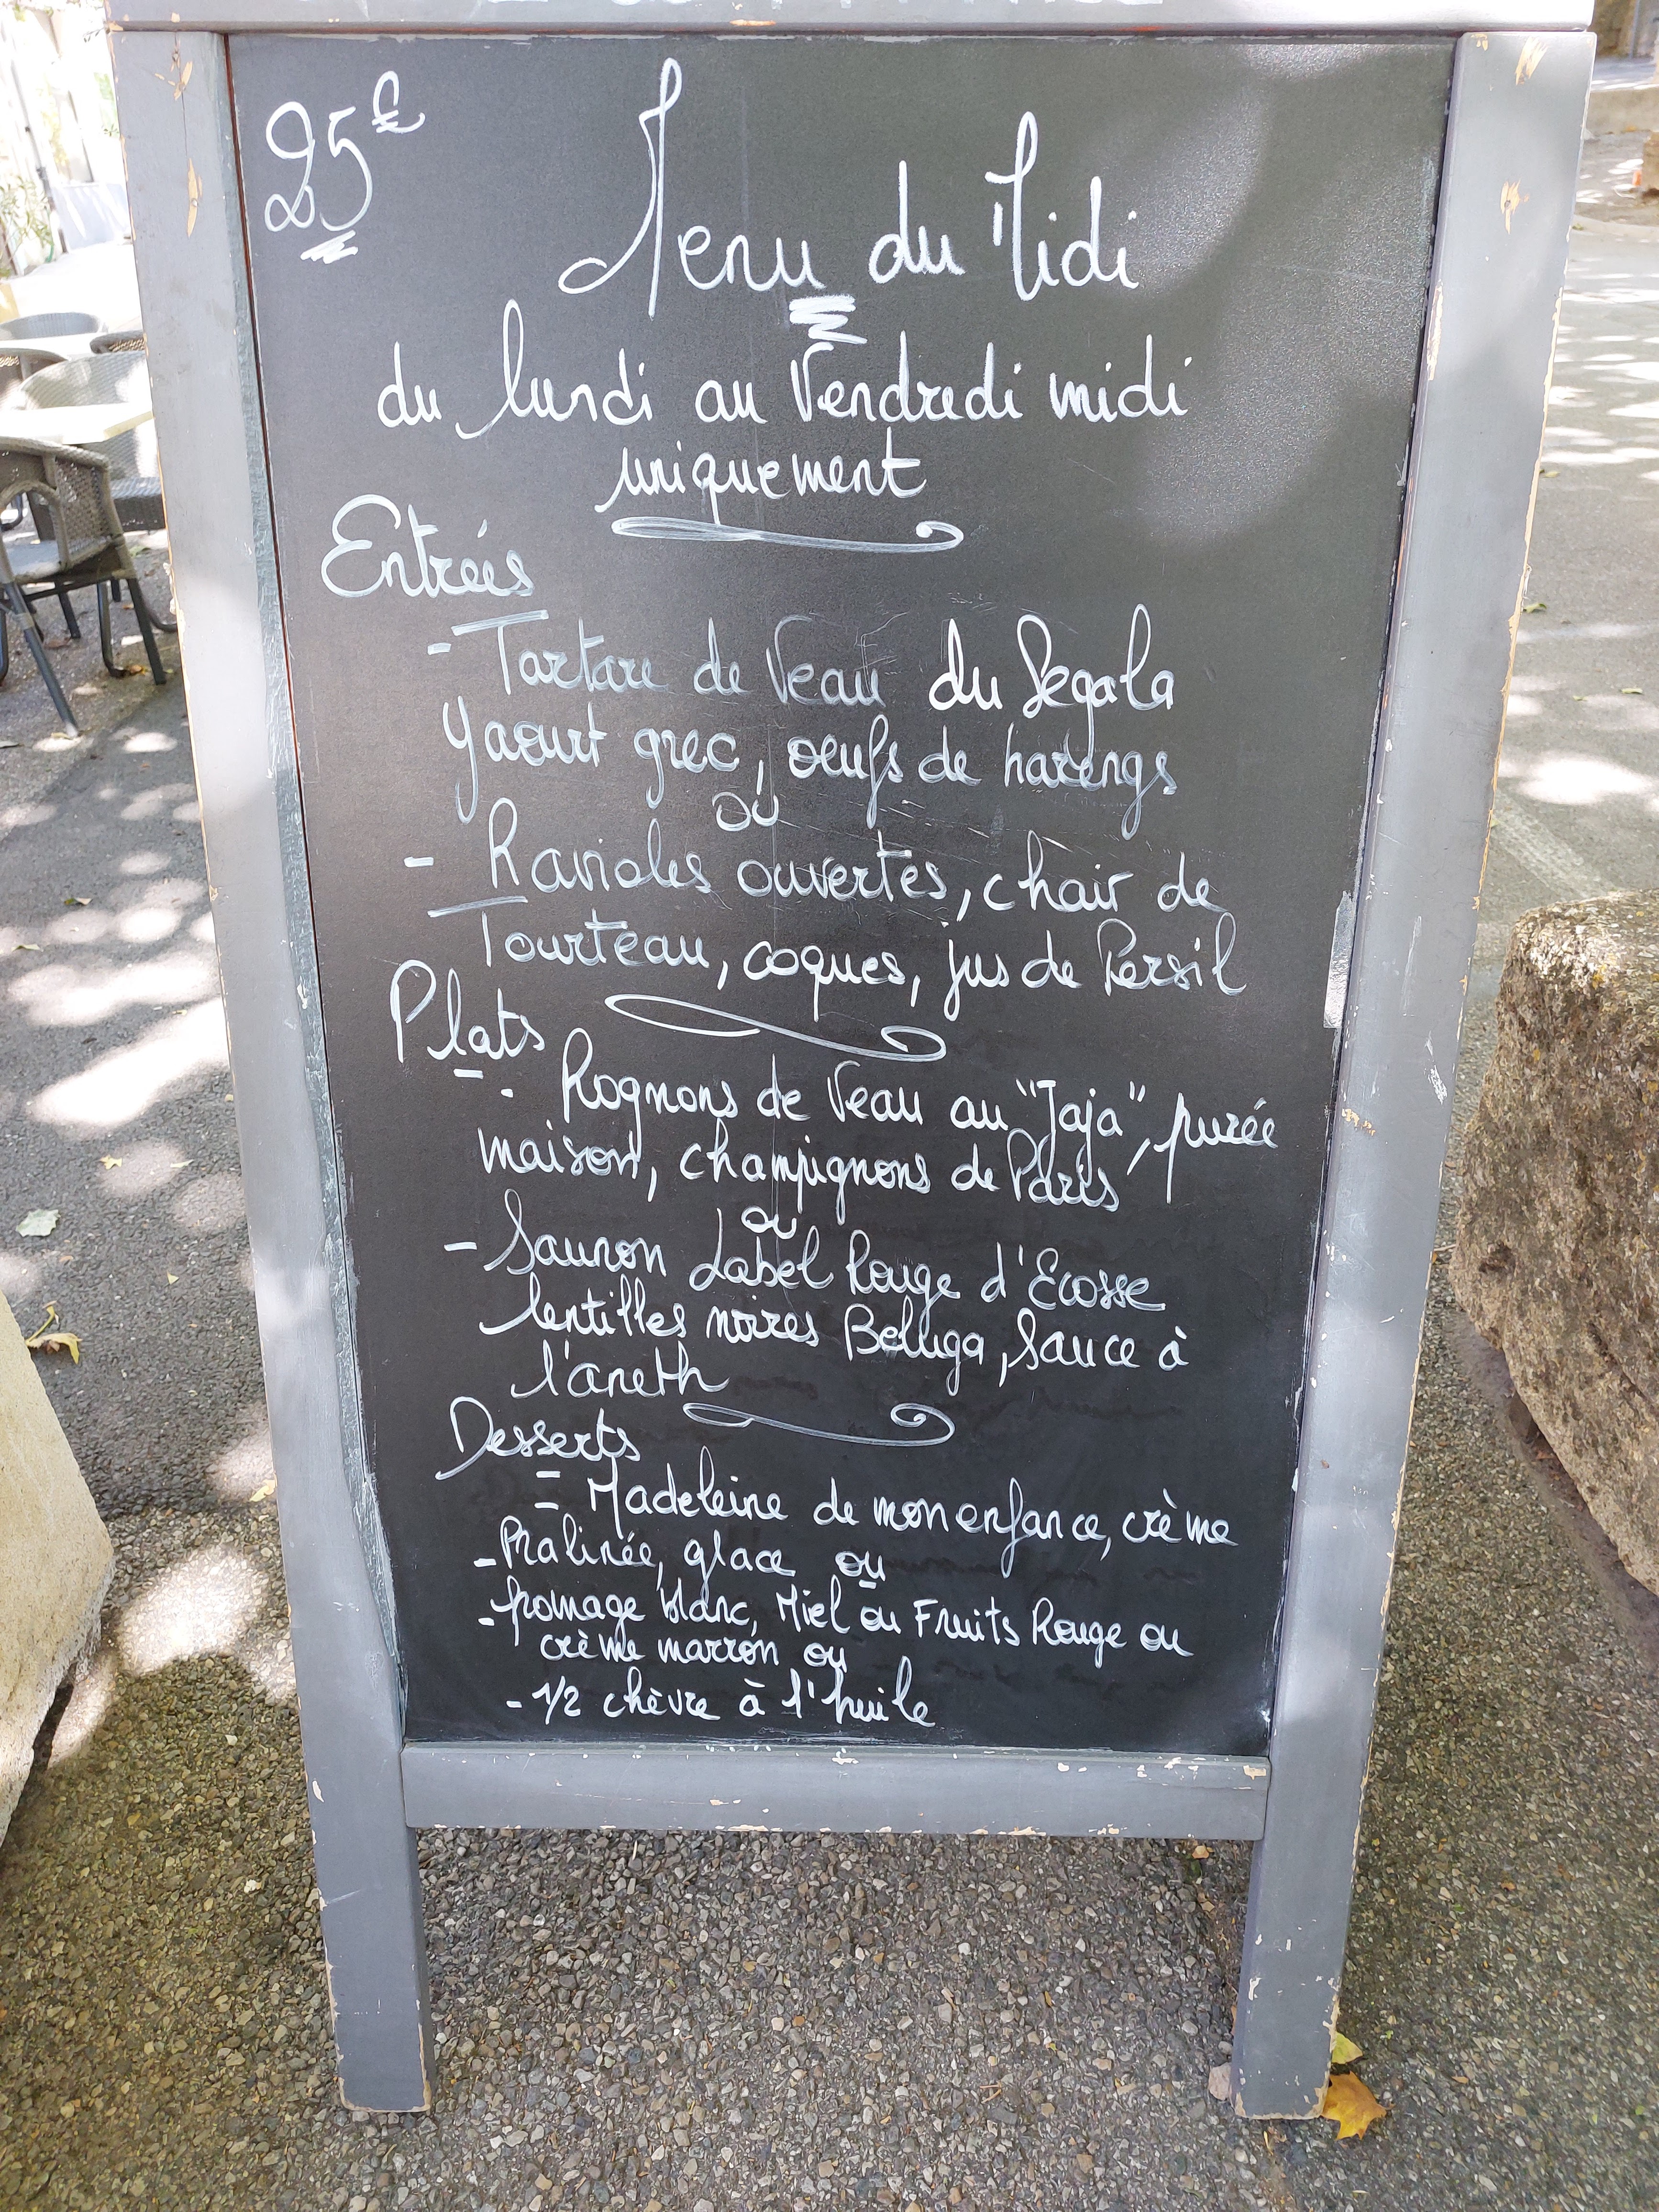 25€
Menu du Midi
du lundi au Vendredi midi
uniquement
Entrées
- Tartare de Veau du Segala
Yaourt grec, oeufs de harengs
ou
- Ravioles ouvertes, chair de
Tourteau, coques, jus de Persil
Plats
- Rognons de Veau au "Jaja", purée
maison, champignons de Paris
ou
- Saumon Label Rouge d'Ecosse
lentilles noires Beluga, Sauce à
l'aneth
Desserts
- Madeleine de mon enfance, crème
- Pralinée, glace ou
- fromage blanc, Miel ou Fruits Rouge ou
crème marron ou
- 1/2 chèvre à l'huile